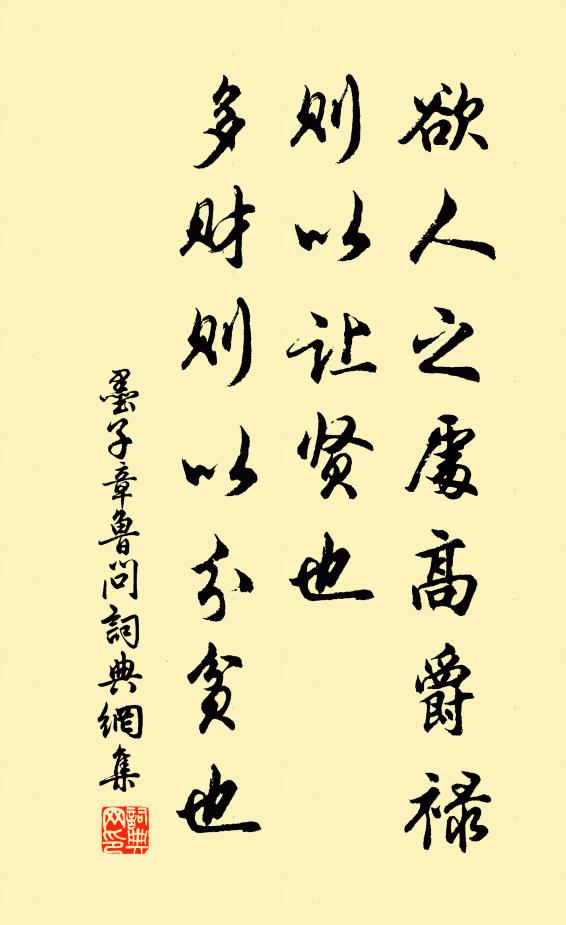 欲人之處高爵禄
则以让贤也
多财则以分贫也
墨子章魯问詞典網集
詞典
网印